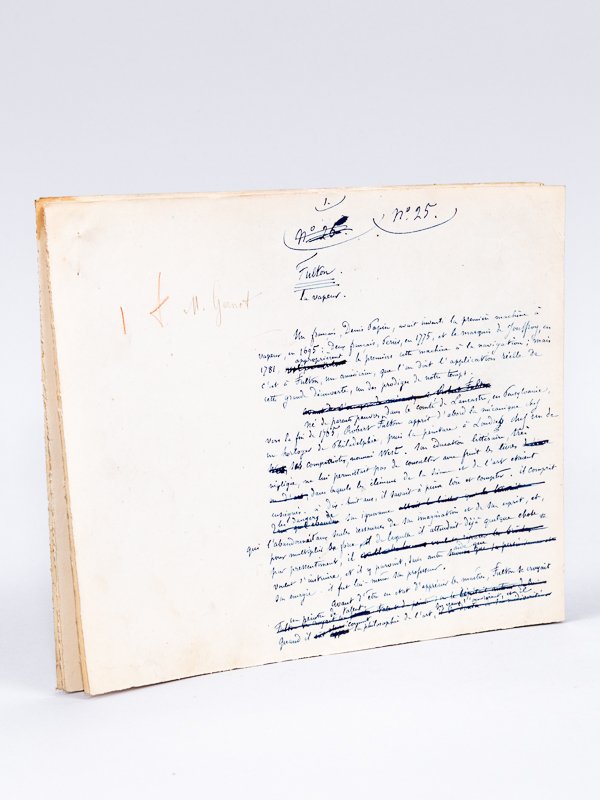 1.
N° 26. N° 25.
Fulton.
la vapeur.
1 M. Ganot
Un français, Denis Papin, avait inventé la première machine à
vapeur, en 1695. Deux français, Périer, en 1775, et le marquis de Jouffroy, en
1781, approprièrent les premiers cette machine à la navigation ; mais
c'est à Fulton, un américain, que l'on doit l'application réelle de
cette grande découverte, un des prodiges de notre temps.
Robert Fulton
Né de parents pauvres, dans le comté de Lancastre, en Pensylvanie,
vers la fin de 1765, Robert Fulton apprit d'abord la mécanique chez
un horloger de Philadelphie, puis la peinture à Londres, chez un de
ses compatriotes, nommé West. Son éducation littéraire, très
négligée, ne lui permettait pas de consulter avec fruit les livres
dans lesquels les éléments de la science et de l'art étaient
enseignés. à dix-huit ans, il savait à peine lire et compter. il comprit
les dangers de son ignorance
qui l'abandonnait aux seules ressources de son imagination et de son esprit, et,
pour multiplier la force de laquelle il attendait déjà quelque chose
par pressentiment, il
voulut s'instruire, et il y parvint, sans autre que
son énergie. il fut lui-même son professeur.
Avant d'être en état d'apprécier les maîtres, Fulton se croyait
un peintre de talent
Quand il la philosophie de l'art,